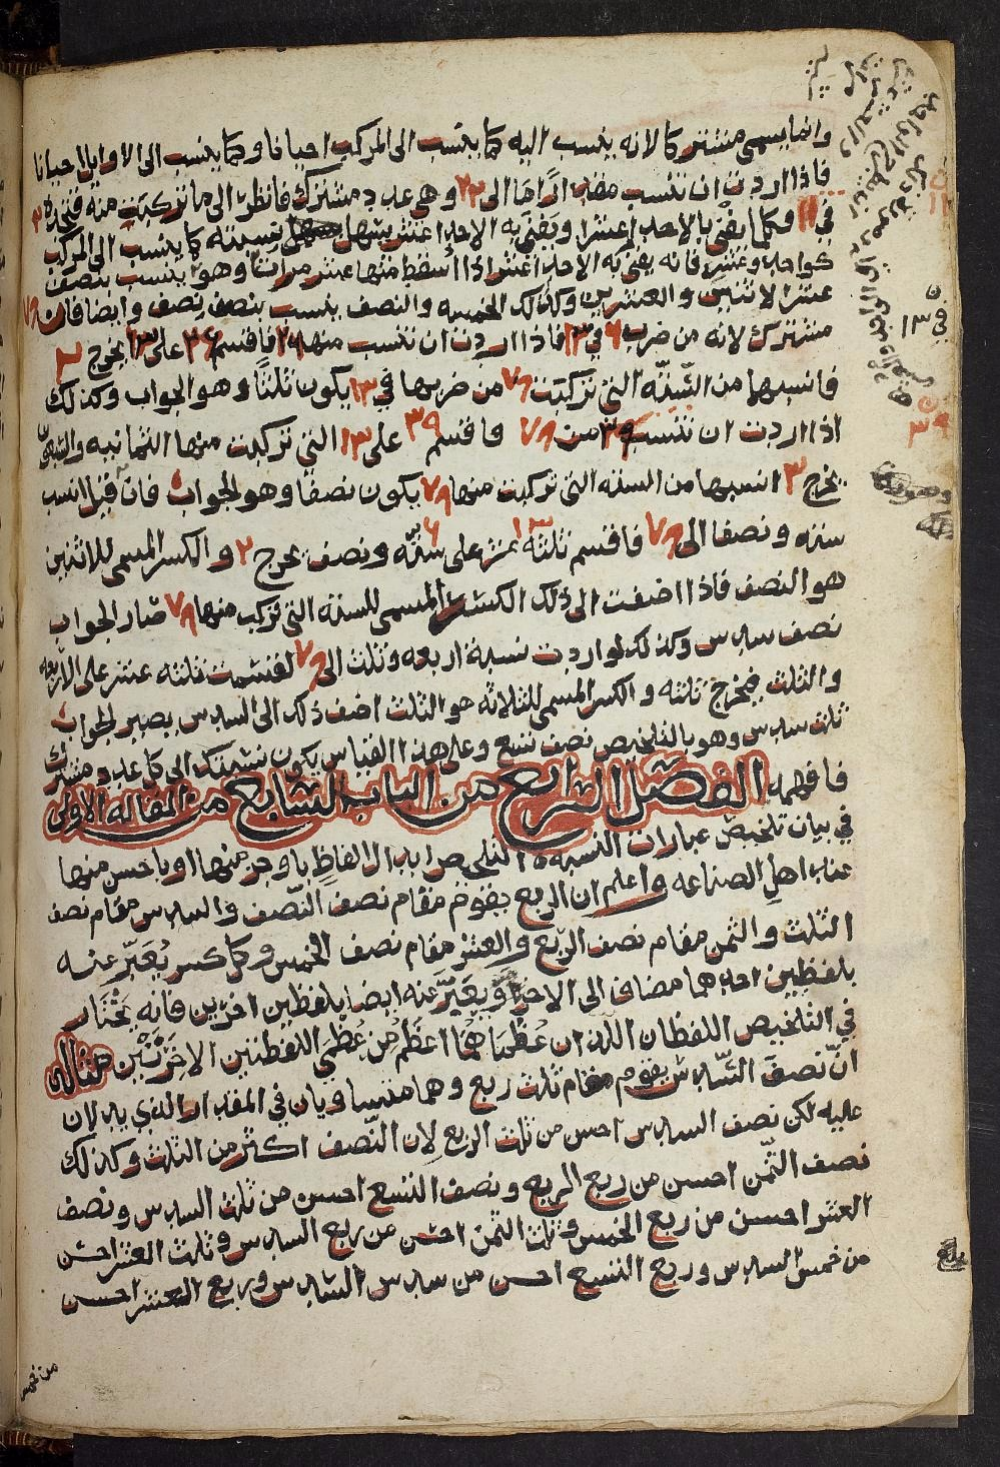 وانما يسمى مشتركا لانه ينسب اليه كما ينسب الى المركب احيانا وكما ينسب الى الاوايل احيانا
فاذا اردت ان تنسب مقدارا ما الى ٢٢ وهي عدد مشترك فانظر الى ما تركبت منه فتجده ٢
في ١١ فكما يفنى بالاحد اعشرا ويفنى به الاحد اعشر نسبته كما ينسب الى المركب
كواحد وعشره فانه يفنى به الاحد اعشر اذا اسقط منها عشر مرات وهو ينسب بنصف
عشر الاثنين والعشرين وكذلك الخمسه والنصف ينسب بنصف نصف وايضا فان ٧٨
مشترك لانه من ضرب ٦ في ١٣ فاذا اردت ان تنسب منها فاقسم على ١٣ يخرج ٢
فانسبها من الستّه التي تركبت ٧٨ من ضربها في ١٣ يكون ثلثا وهو الجواب وكذلك
اذا اردت ان تنسب ٣٩ من ٧٨ فاقسم ٣٩ على ١٣ التي تركبت منها الثمانيه والسبعين
يخرج ٣ انسبها من السته التي تركبت منها ٧٨ يكون نصفا وهو الجواب فان قيل انسب
سته ونصفا الى ٧٨ فاقسم ثلثة عشر على ستّه ونصف يخرج ٢ والكسر المسمى للاثنين
هو النصف فاذا اضفت الى ذلك الكسر المسمى للسته التي تركب منها ٧٨ صار الجواب
نصف سدس وكذلك لو اردت نسبة اربعه وثلث الى ٧٨ لقسمت ثلثه عشر على الاربعه
والثلث فيخرج ثلثه والكسر المسمى للثلاثه هو الثلث اضف ذلك الى السدس يصير الجواب
ثلث سدس وهو بالتلخيص نصف تسع وعلى هذا القياس يكون نسبتك الى كل عدد مشترك
فافهمه الفصل الرابع من الباب السابع من المقاله الاولى
في بيان تلخيص عبارات النسبه التلخيص ابدال الالفاظ باوجز منها او باحسن منها
عند اهل الصناعه واعلم ان الربع يقوم مقام نصف النّصف والسدس مقام نصف
الثلث والثمن مقام نصف الرّبع والعشر مقام نصف الخمس وكل كسر يُعبّر عنه
بلفظين احدهما مضاف الى الاخر ويُعبَّر عنه ايضا بلفظين اخرين فانه يختار
في التلخيص اللفظان اللذان عُظْمَاهُمَا اعظم من عُظْمَى اللفظتين الاخرَيَيْن مثاله
انّ نصف السّدس يقوم مقام ثلث ربع وهما متساويان في المقدار الذي يدلان
عليه لكن نصف السدس احسن من ثلث الربع لان النّصف اكثر من الثلث وكذلك
نصف الثّمن احسن من ربع الربع ونصف التسع احسن من ثلث السدس ونصف
العشر احسن من ربع الخمس وثلث الثمن احسن من ربع السدس وثلث العشر احسن
من خمس السدس وربع التسع احسن من سدس السّدس وربع العشر احسن
من خمس